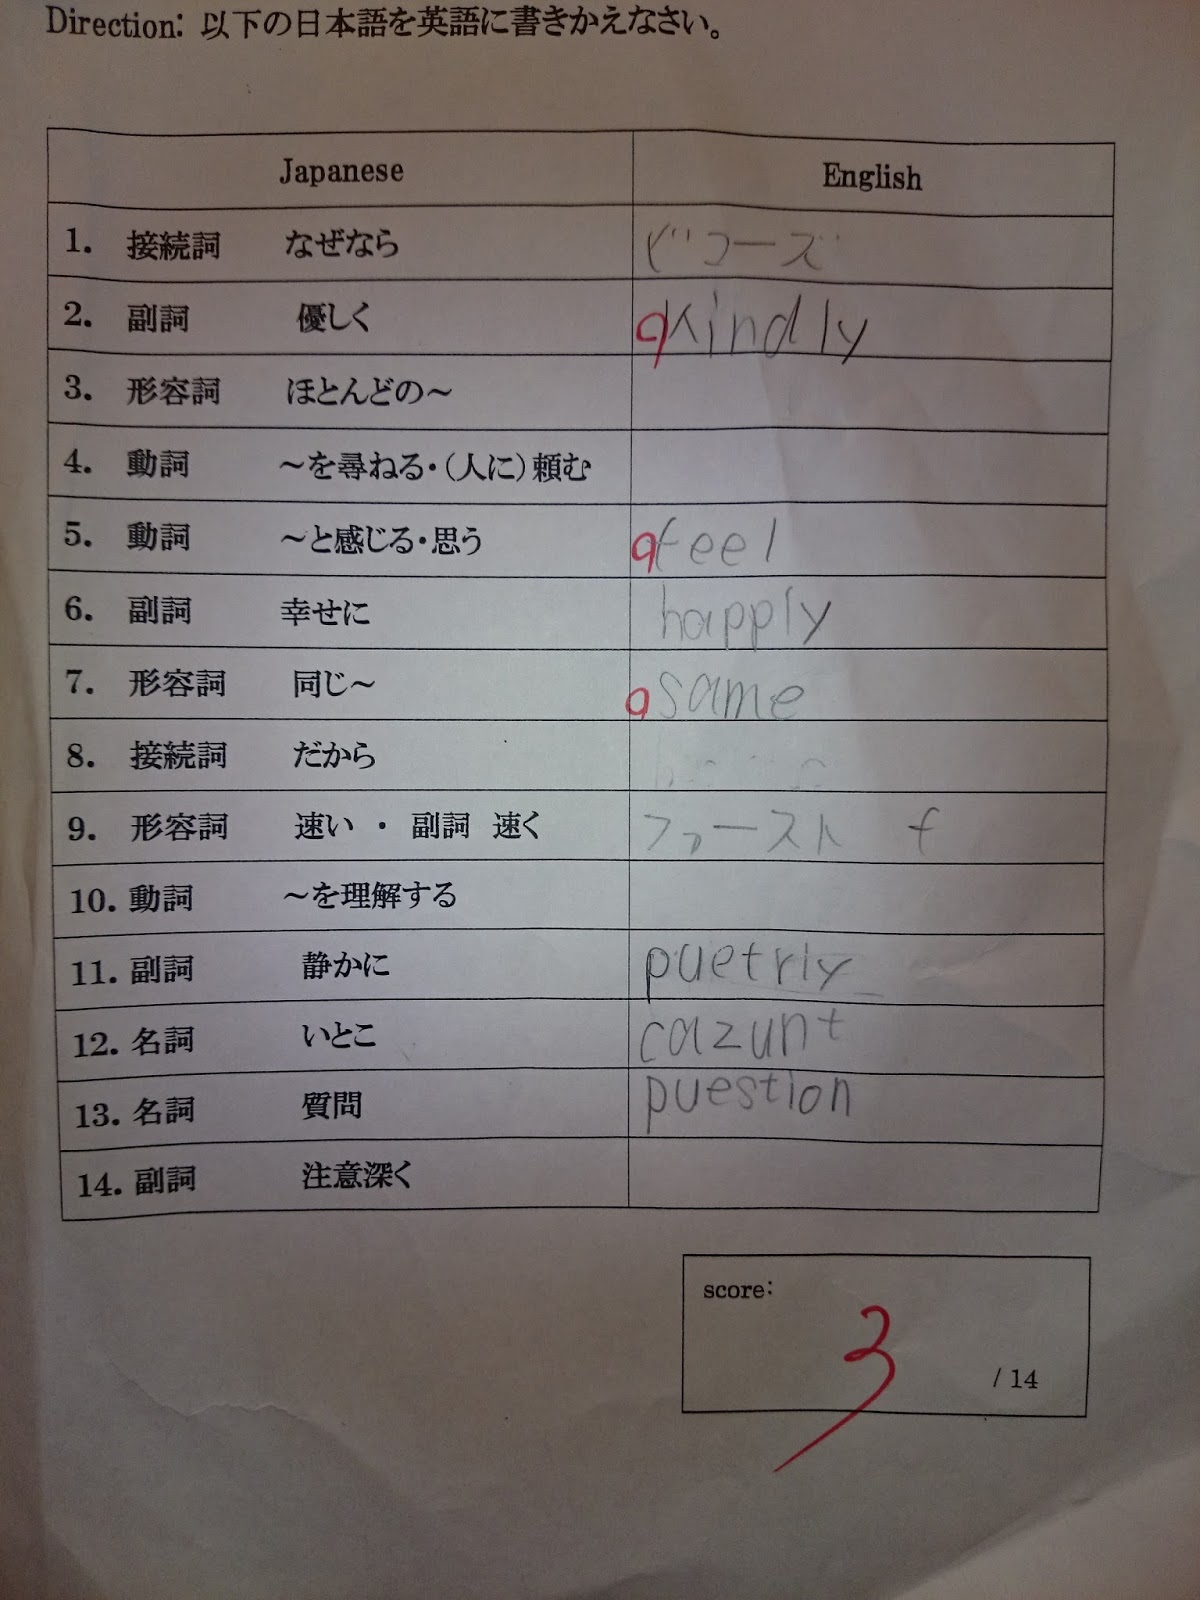 Direction: 以下の日本語を英語に書きかえなさい。
Japanese English
1. 接続詞 なぜなら ビコーズ
2. 副詞 優しく kindly
3. 形容詞 ほとんどの～
4. 動詞 ～を尋ねる・（人に）頼む
5. 動詞 ～と感じる・思う feel
6. 副詞 幸せに happly
7. 形容詞 同じ～ same
8. 接続詞 だから
9. 形容詞 速い ・ 副詞 速く ファースト f
10. 動詞 ～を理解する
11. 副詞 静かに puetrly
12. 名詞 いとこ cazunt
13. 名詞 質問 puestion
14. 副詞 注意深く
score:
3 / 14